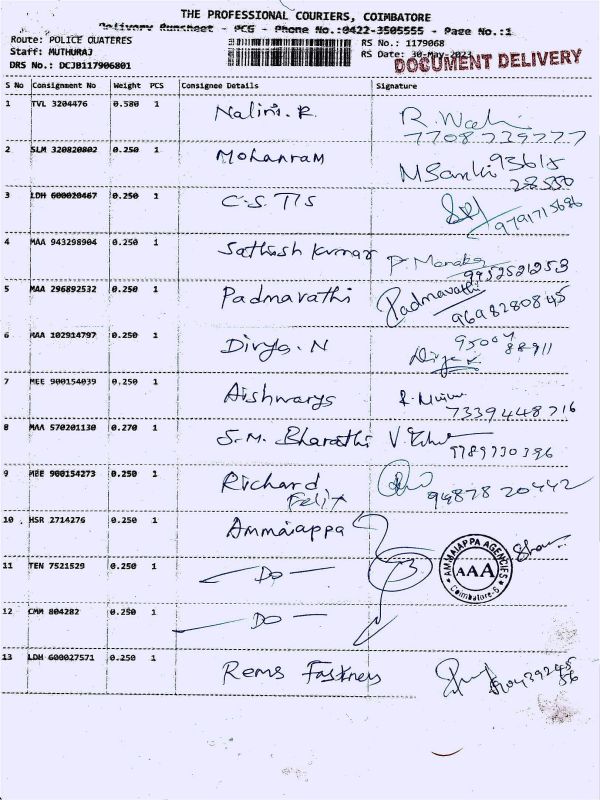 THE PROFESSIONAL COURIERS, COIMBATORE
Delivery Runsheet - PCG - Phone No.:0422-3505555 - Page No.:1
Route: POLICE QUATERES
RS No.: 1179068
Staff: MUTHURAJ
RS Date: 30-May-2023
DRS No.: DCJB117906801
DOCUMENT DELIVERY
S No Consignment No Weight PCS Consignee Details Signature
1 TVL 3204476 0.580 1 Nalini. R
7708739777
2 SLM 320820802 0.250 1 Mohanram
93615
3 LDH 600020467 0.250 1 C.S. TIS
9791715696
4 MAA 943298904 0.250 1 Sathish Kumar
9952521253
5 MAA 296892532 0.250 1 Padmavathi Padmavathi
9698280845
6 MAA 102914797 0.250 1 Divya. N
95007
88911
7 MEE 900154039 0.250 1 Aishwarya
7339448716
8 MAA 570201130 0.270 1 S.M. Bharathi
9789730396
9 MEE 900154273 0.250 1 Richard
Felix 94878 20442
10 HSR 2714276 0.250 1 Ammaiappa
11 TEN 7521529 0.250 1 — Do — 3
AMMAIAPPA AGENCIES
AAA
Coimbatore-5
12 CMM 804282 0.250 1 — Do —
13 LDH 600027571 0.250 1 Rems Fastners